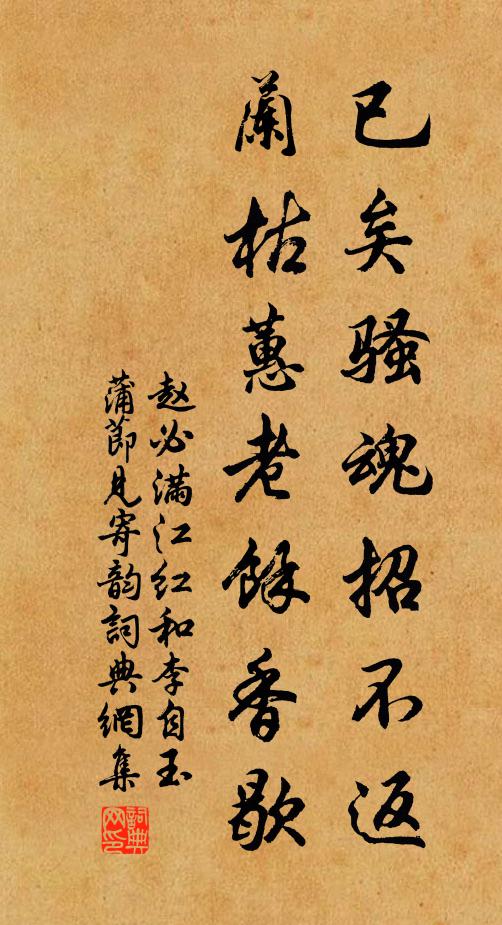 已矣骚魂招不返
蘭枯蕙老餘香歇
赵必满江红和李自玉
蒲節見寄韵詞典網集
詞典网印